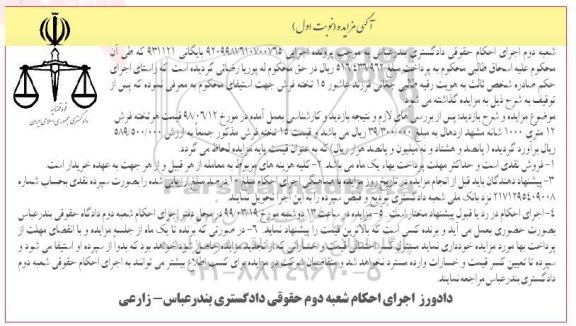 آگهی مزایده (نوبت اول)
شعبه دوم اجرای احکام حقوقی دادگستری بندرعباس به موجب پرونده اجرایی ۹۲۰۹۹۸۷۶۱۰۷۰۰۷۶۵ بایگانی ۹۳۱۱۲۱ که طی آن
محکوم علیه اسحاق طالبی محکوم به پرداخت مبلغ ریال در حق محکوم له پوریا رضائی گردیده است که راستای اجرای
حکم صادره شخص ثالث به هویت رقیه طالبی چعانی فرزند عاشور ۱۵ تخته فرش جهت استیفای محکوم به معرفی نموده که پس از
توقیف به شرح ذیل به مزایده گذاشته می شود.
موضوع مزایده و شرح بازدید: پس از بررسی های لازم و نتیجه بازدید و کارشناسی بعمل آمده در مورخ ۹۸/۰۶/۱۲ قیمت هر تخته فرش
۱۲ متری ۱۰۰۰ شانه مشهد اردهال به مبلغ ۳۹/۳۰۰/۰۰۰ ریال می باشد و قیمت ۱۵ تخته فرش مذکور جمعا به ارزش ۵۸۹/۵۰۰/۰۰۰
ریال برآورد گردیده (پانصد و هشتاد و نه میلیون و پانصد هزار ریال) که به عنوان قیمت پایه مزایده لحاظ می گردد.
۱- فروش نقدی است و حداکثر مهلت پرداخت بهاء یک ماه می باشد. ۲- کلیه هزینه های مربوط به معامله از هر قبیل و از هر جهت به عهده خریدار است.
۳- پیشنهاد دهندگان باید قبل از انجام مزایده در تاریخ روز مزایده با هماهنگی اجرای احکام مبلغ ۱۰ درصد مبلغ ارزیابی شده را بصورت سپرده نقدی بحساب شماره
۲۱۷۱۲۹۵۴۰۹۰۰۸ نزد بانک ملی شعبه دادگستری تودیع و فیش سپرده را به این اجرا تحویل نمایند.
۴- اجرای احکام در رد یا قبول پیشنهاد مختار است. ۵- مزایده در ساعت ۱۳ دوشنبه مورخ ۹۹/۰۳/۱۹ در محل دفتر اجرای احکام شعبه دوم دادگاه حقوقی بندرعباس
بصورت حضوری بعمل می آید و برنده کسی است که بالاترین قیمت را پیشنهاد نماید. ۶- در صورتی که برنده تا یک ماه از جلسه مزایده و با انقضای مهلت از
پرداخت بها مورد مزایده خودداری نماید مسئول کسر احتمالی قیمت و خساراتی که از تجدید مزایده حاصل شود خواهد بود که بدوا از سپرده او استیفا می شود و
سپرده تا تعیین کسر قیمت و خسارات وارده مسترد نخواهد شد و متقاضیان شرکت در مزایده برای کسب اطلاع بیشتر می توانند به اجرای احکام حقوقی شعبه دوم
دادگستری بندرعباس مراجعه نمایند.
دادورز اجرای احکام شعبه دوم حقوقی دادگستری بندرعباس - زارعی